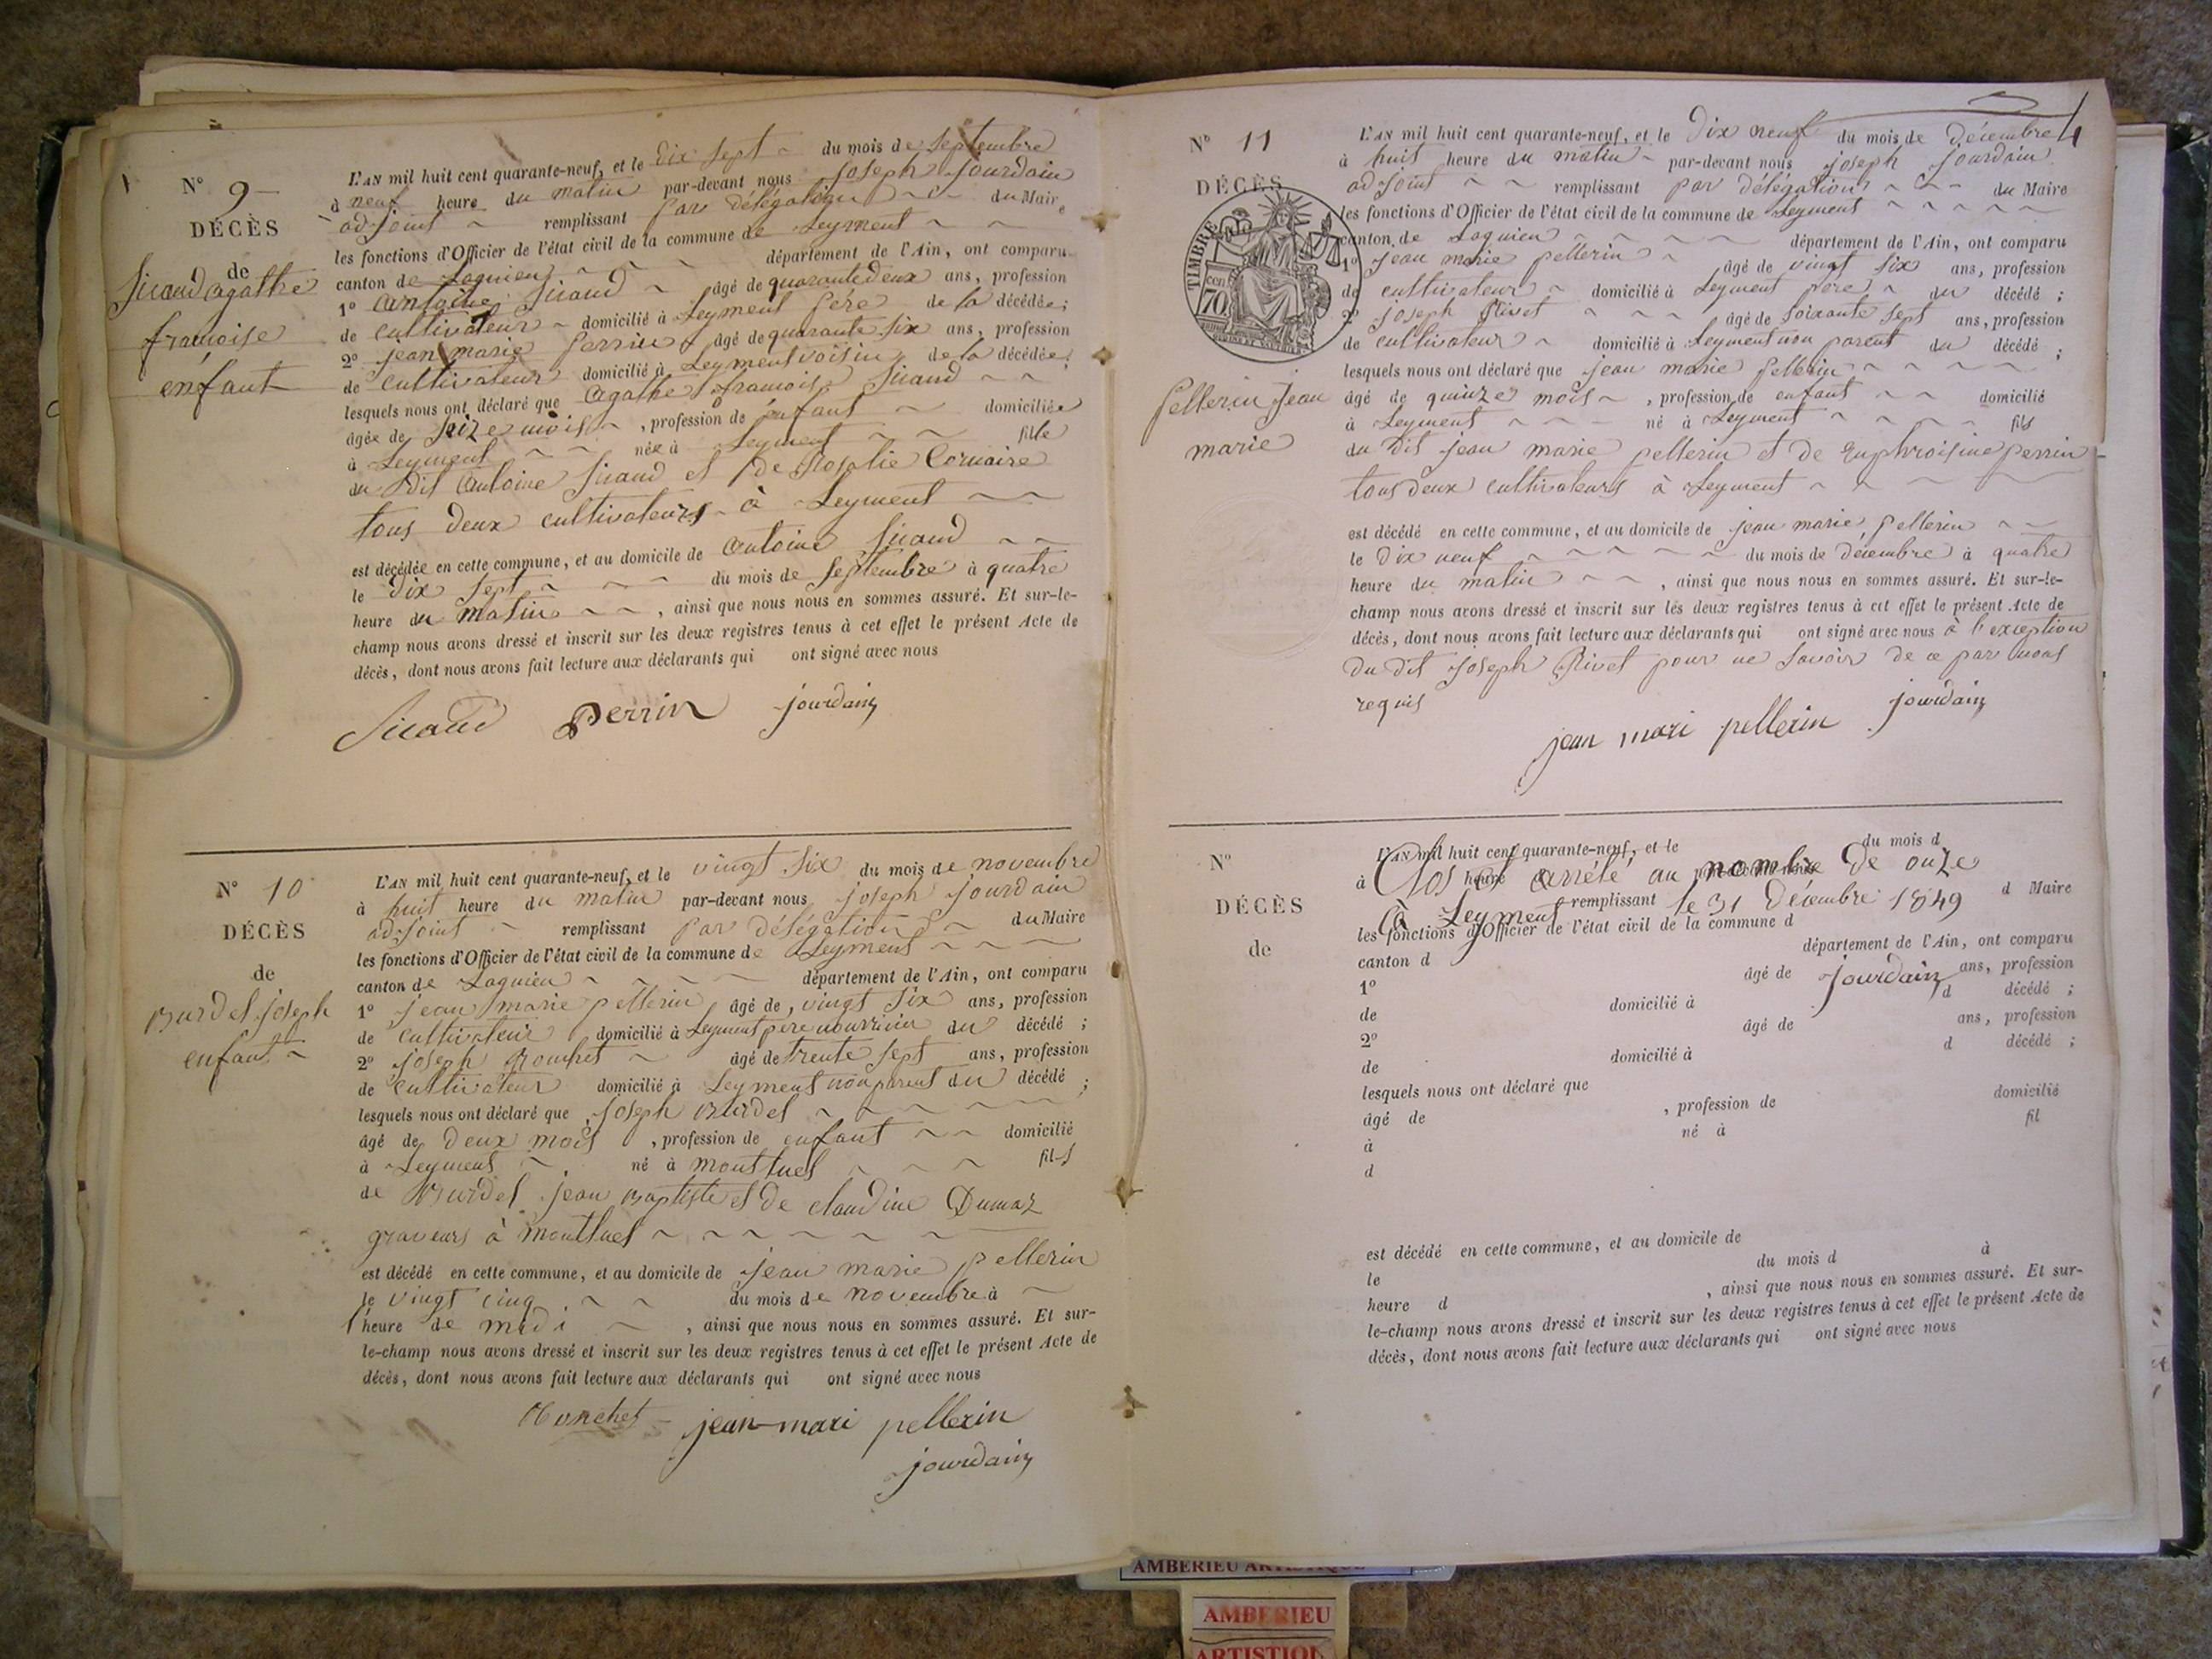 N° 9
DÉCÈS
de
Sicaud agathe
francoise
enfant
L'AN mil huit cent quarante-neuf, et le dix sept du mois de septembre
à neuf heure du matin par-devant nous joseph jourdain
adjoint remplissant par délégation du Maire
les fonctions d'Officier de l'état civil de la commune de Leyment
canton de Lagnieu département de l'Ain, ont comparu
1° antoine Sicaud âgé de quarante deux ans, profession
de cultivateur domicilié à Leyment père de la décédée ;
2° jean marie perrin âgé de quarante six ans, profession
de cultivateur domicilié à Leyment voisin de la décédée ;
lesquels nous ont déclaré que agathe francoise Sicaud
âgée de seize mois , profession de enfant domiciliée
à Leyment née à Leyment fille
du dit antoine Sicaud et de Rosalie
tous deux cultivateurs à Leyment
est décédée en cette commune, et au domicile de antoine Sicaud
le dix sept du mois de septembre à quatre
heure du matin , ainsi que nous nous en sommes assuré. Et sur-le-
champ nous avons dressé et inscrit sur les deux registres tenus à cet effet le présent Acte de
décès, dont nous avons fait lecture aux déclarants qui ont signé avec nous
Sicaud perrin jourdain
N° 10
DÉCÈS
de
Burdel joseph
enfant
L'AN mil huit cent quarante-neuf, et le vingt six du mois de novembre
à huit heure du matin par-devant nous joseph jourdain
adjoint remplissant par délégation du Maire
les fonctions d'Officier de l'état civil de la commune de Leyment
canton de Lagnieu département de l'Ain, ont comparu
1° jean marie pellerin âgé de vingt six ans, profession
de cultivateur domicilié à Leyment père nourricier du décédé ;
2° joseph Ronchet âgé de trente sept ans, profession
de cultivateur domicilié à Leyment non parent du décédé ;
lesquels nous ont déclaré que joseph Burdel
âgé de deux mois , profession de enfant domicilié
à Leyment né à montluel fils
de Burdel jean Baptiste et de claudine Dumaz
graveurs à montluel
est décédé en cette commune, et au domicile de jean marie pellerin
le vingt cinq du mois de novembre à
heure de midi , ainsi que nous nous en sommes assuré. Et sur-
le-champ nous avons dressé et inscrit sur les deux registres tenus à cet effet le présent Acte de
décès, dont nous avons fait lecture aux déclarants qui ont signé avec nous
Ronchet jean-mari pellerin
jourdain
N° 11
DÉCÈS
TIMBRE
70
pellerin jean
marie
L'AN mil huit cent quarante-neuf, et le dix neuf du mois de décembre
à huit heure du matin par-devant nous joseph jourdain
adjoint remplissant par délégation du Maire
les fonctions d'Officier de l'état civil de la commune de Leyment
canton de Lagnieu département de l'Ain, ont comparu
1° jean marie pellerin âgé de vingt six ans, profession
de cultivateur domicilié à Leyment père du décédé ;
2° joseph Rivet âgé de soixante sept ans, profession
de cultivateur domicilié à Leyment non parent du décédé ;
lesquels nous ont déclaré que jean marie pellerin
âgé de quinze mois , profession de enfant domicilié
à Leyment né à Leyment fils
du dit jean marie pellerin et de Euphroisine perrin
tous deux cultivateurs à Leyment
est décédé en cette commune, et au domicile de jean marie pellerin
le dix neuf du mois de décembre à quatre
heure du matin , ainsi que nous nous en sommes assuré. Et sur-le-
champ nous avons dressé et inscrit sur les deux registres tenus à cet effet le présent Acte de
décès, dont nous avons fait lecture aux déclarants qui ont signé avec nous à l'exception
du dit joseph Rivet pour ne savoir de ce par nous
requis
jean mari pellerin jourdain
N°
DÉCÈS
de
L'AN mil huit cent quarante-neuf, et le du mois d
à heure
Clos et arrêté au nombre de onze
remplissant d Maire
à Leyment le 31 décembre 1849
les fonctions d'Officier de l'état civil de la commune d
canton d département de l'Ain, ont comparu
1° âgé de ans, profession
jourdain
de domicilié à d décédé ;
2° âgé de ans, profession
de domicilié à d décédé ;
lesquels nous ont déclaré que
âgé de , profession de domicilié
à né à fil
d
est décédé en cette commune, et au domicile de
le du mois d à
heure d , ainsi que nous nous en sommes assuré. Et sur-
le-champ nous avons dressé et inscrit sur les deux registres tenus à cet effet le présent Acte de
décès, dont nous avons fait lecture aux déclarants qui ont signé avec nous
AMBERIEU ARTISTIQUE
AMBERIEU